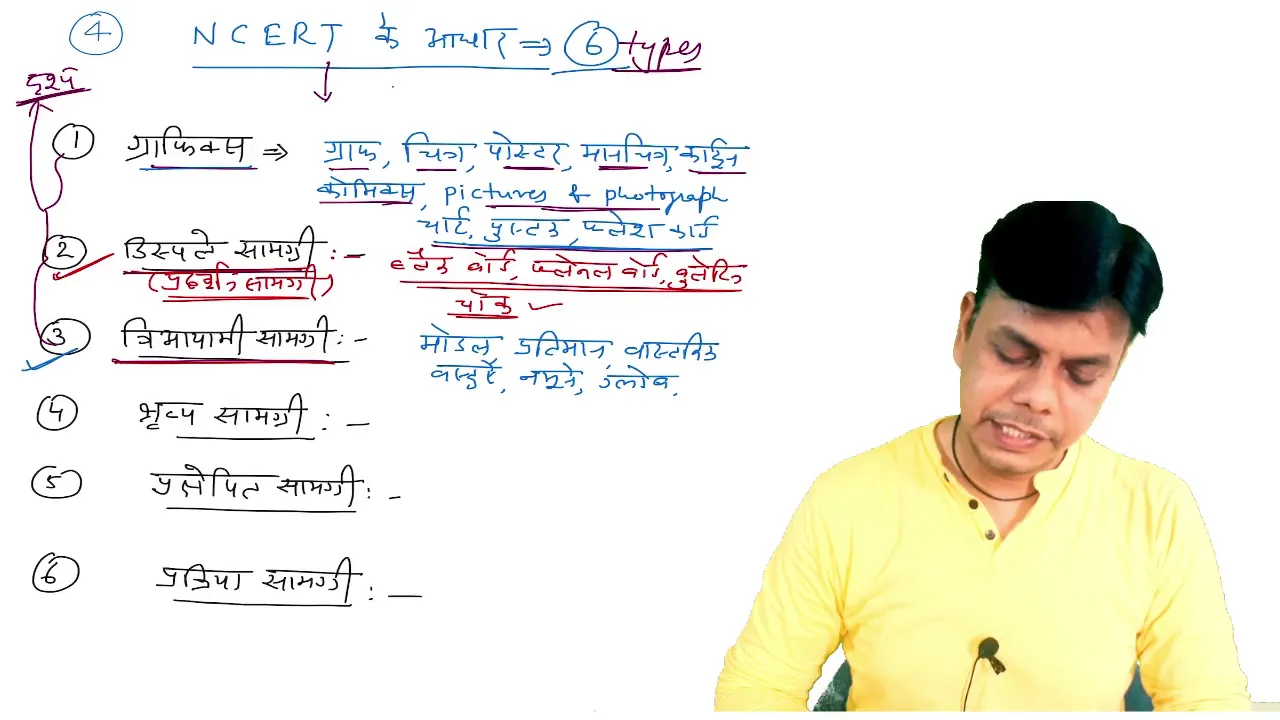 ④ NCERT के आधार ⇒ ⑥ types
दृश्य
① ग्राफिक्स ⇒ ग्राफ, चित्र, पोस्टर, मानचित्र, कार्टून
कॉमिक्स, pictures & photograph
चार्ट, पुस्तक, फ्लेश कार्ड
② डिस्पले सामग्री :- ब्लैक बोर्ड, फ्लेनल बोर्ड, बुलेटिन
(प्रदर्शन सामग्री) चॉक ✓
③ त्रिआयामी सामग्री :- मोडल, प्रतिमान, वास्तविक
वस्तुएँ, नमूने, ग्लोब,
④ श्रव्य सामग्री : -
⑤ प्रक्षेपित सामग्री : -
⑥ प्रक्रिया सामग्री : -